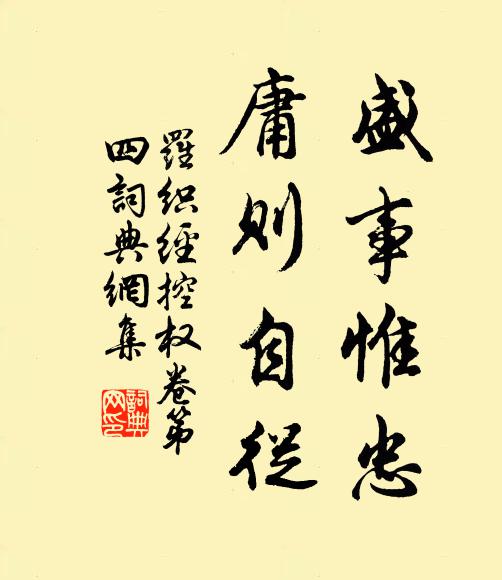 盛事惟忠
庸則自從
羅织經控权卷第
四詞典網集
詞典网印